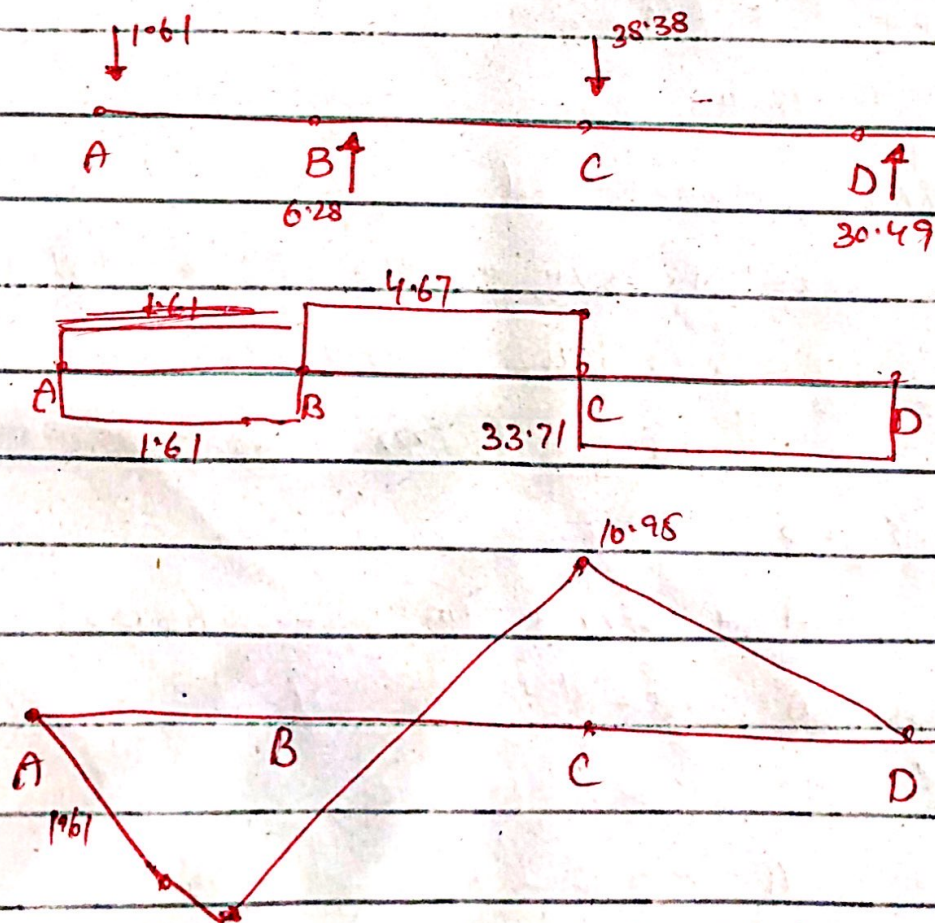 1.61 38.38
A B C D
6.28 30.49
1.61 4.67
A B C D
1.61 33.71
10.95
A B C D
1.61